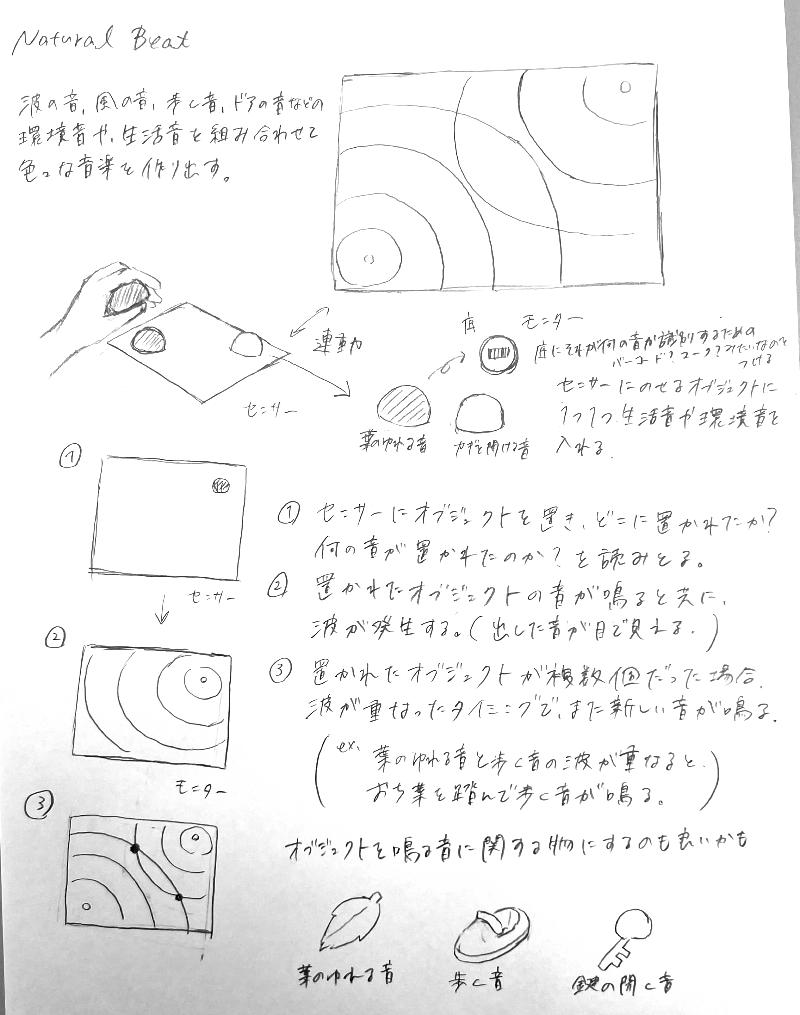 Natural Beat
波の音、風の音、歩く音、ドアの音などの
環境音や、生活音を組み合わせて
色々な音楽を作り出す。
モニター
連動
センサー
底
底にそれが何の音か識別するための
バーコード?コード?みたいなのを
つける
センサーにのせるオブジェクトに
1つ1つ生活音や環境音を
入れる.
葉のゆれる音
カギを開ける音
①
センサー
②
モニター
③
① センサーにオブジェクトを置き、どこに置かれたか?
何の音が置かれたのか?を読みとる。
② 置かれたオブジェクトの音が鳴ると共に、
波が発生する。(出した音が目で見える.)
③ 置かれたオブジェクトが複数個だった場合、
波が重なったタイミングで、また新しい音が鳴る.
(ex. 葉のゆれる音と歩く音の波が重なると、
おち葉を踏んで歩く音が鳴る。)
オブジェクトを鳴る音に関する物にするのも良いかも
葉のゆれる音
歩く音
鍵の開く音